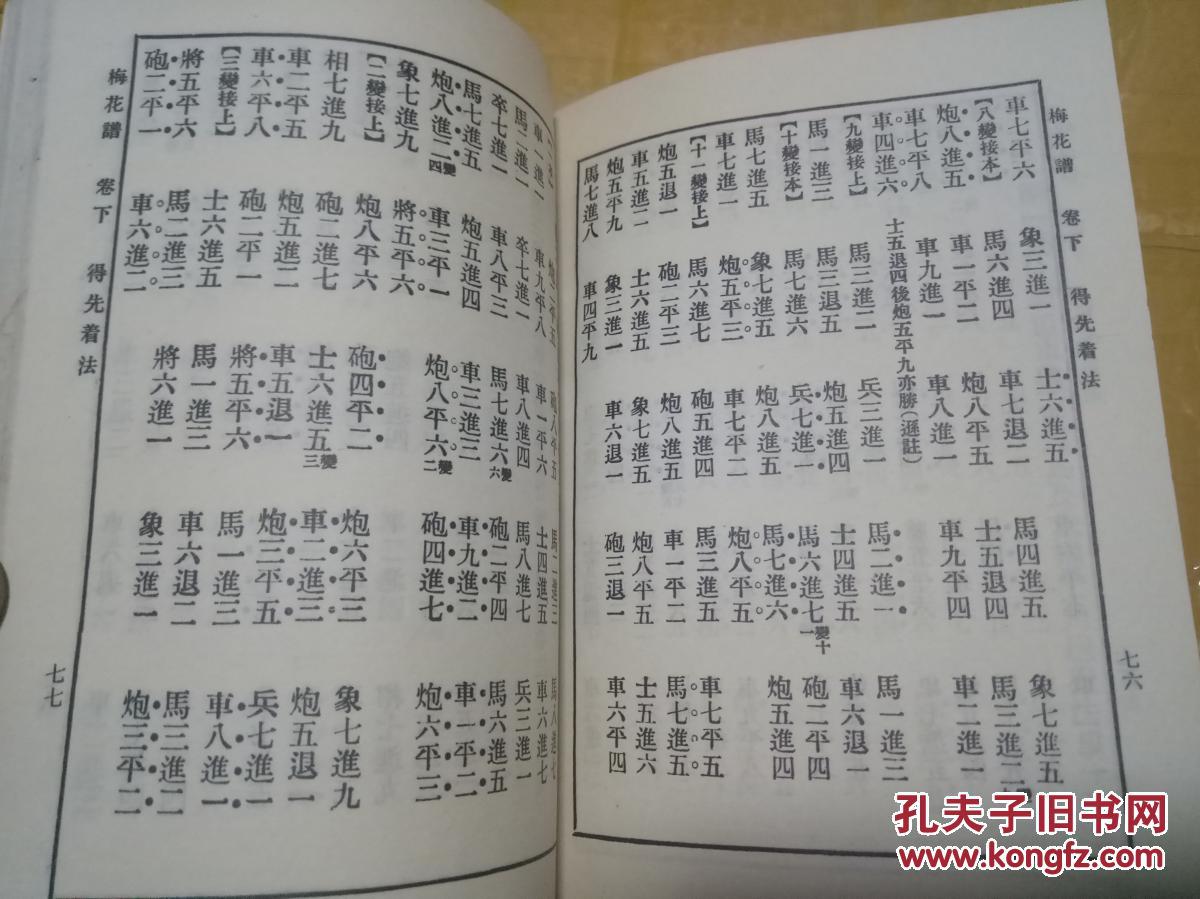 梅花譜 卷下 得先着法 七六
車七平六 象三進一 士六進五 馬四進五 象七進五
【八變接本】 馬六進四 車七退二 士五退四 馬三進二
炮八進五 車一平二 炮八平五 車九平四 車二進一
車七平八 車九進一 車八進一
車四進六 士五退四後炮五平九亦勝(遜註)
【九變接上】 馬三進二 兵三進一 馬二進一 馬一進三
馬一進三 馬三退五 炮五進四 士四進五 車六退一
【十變接本】 馬七進六 兵七進一 馬六進七變十一 砲二平四
馬七進五 象七進五 炮八進五 馬七進六 炮五進四
車七進一 炮五平三 車七平二 炮八平五
【十一變接上】 馬六進七 砲五進四 馬三進五 車七平五
炮五退一 砲二平三 炮八進五 車一平二 馬七進五
車五進二 士六進五 象七進五 炮八平五 士五進六
炮五平九 象三進一 車六退一 砲三退一 車六平四
馬七進八 車四平九
砲八平五 馬二進三
車一進一 車九平八 車一平六 士四進五 車六進七
馬二進一 卒七進一 車八進四 馬八進七 兵三進一
卒七進一 車八平三 馬七進六變六 砲二平四 馬六進五
馬七進五 炮五進四 車三進三 車九進二 車一平二
炮八進二變四 車三平一 炮八平六變二 砲四進七 炮六平三
象七進九 將五平六
【二變接上】 炮八平六 砲四平二 炮六平三 象七進九
相七進九 砲二進七 士六進五變三 車二進三 炮五退一
車二平五 炮五進二 車五退一 炮三平五 兵七進一
車六平八 砲二平一 將五平六 馬一進三 車八進一
【三變接上】 士六進五 馬一進三 車六退二 馬三進二
將五平六 馬二進三 將六進一 象三進一 炮三平二
砲二平一 車六進二
梅花譜 卷下 得先着法 七七
孔夫子旧书网
www.kongfz.com